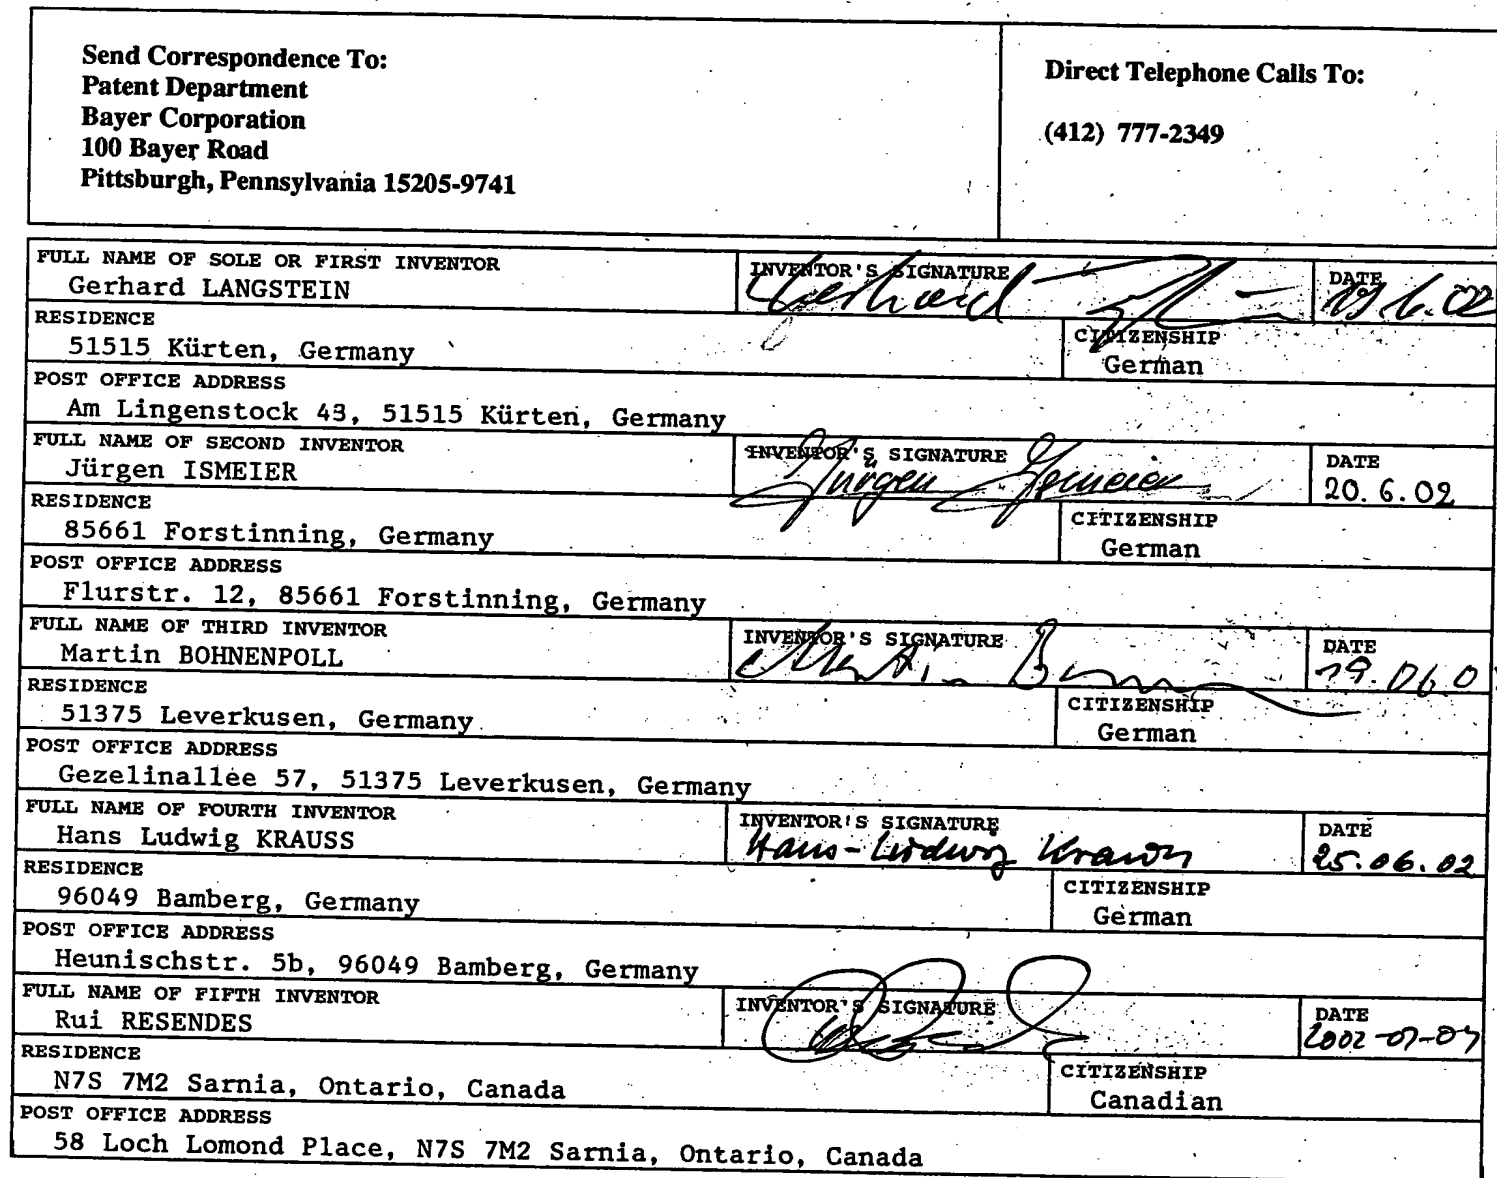 Send Correspondence To:
Patent Department
Bayer Corporation
100 Bayer Road
Pittsburgh, Pennsylvania 15205-9741
Direct Telephone Calls To:
(412) 777-2349
FULL NAME OF SOLE OR FIRST INVENTOR
Gerhard LANGSTEIN
INVENTOR'S SIGNATURE
Gerhard
DATE
RESIDENCE
51515 Kürten, Germany
CITIZENSHIP
German
POST OFFICE ADDRESS
Am Lingenstock 43, 51515 Kürten, Germany
FULL NAME OF SECOND INVENTOR
Jürgen ISMEIER
INVENTOR'S SIGNATURE
Jürgen Ismeier
DATE
20.6.02
RESIDENCE
85661 Forstinning, Germany
CITIZENSHIP
German
POST OFFICE ADDRESS
Flurstr. 12, 85661 Forstinning, Germany
FULL NAME OF THIRD INVENTOR
Martin BOHNENPOLL
INVENTOR'S SIGNATURE
Martin
DATE
19.06.0
RESIDENCE
51375 Leverkusen, Germany
CITIZENSHIP
German
POST OFFICE ADDRESS
Gezelinallee 57, 51375 Leverkusen, Germany
FULL NAME OF FOURTH INVENTOR
Hans Ludwig KRAUSS
INVENTOR'S SIGNATURE
Hans-Ludwig Krauss
DATE
25.06.02
RESIDENCE
96049 Bamberg, Germany
CITIZENSHIP
German
POST OFFICE ADDRESS
Heunischstr. 5b, 96049 Bamberg, Germany
FULL NAME OF FIFTH INVENTOR
Rui RESENDES
INVENTOR'S SIGNATURE
DATE
RESIDENCE
N7S 7M2 Sarnia, Ontario, Canada
CITIZENSHIP
Canadian
POST OFFICE ADDRESS
58 Loch Lomond Place, N7S 7M2 Sarnia, Ontario, Canada